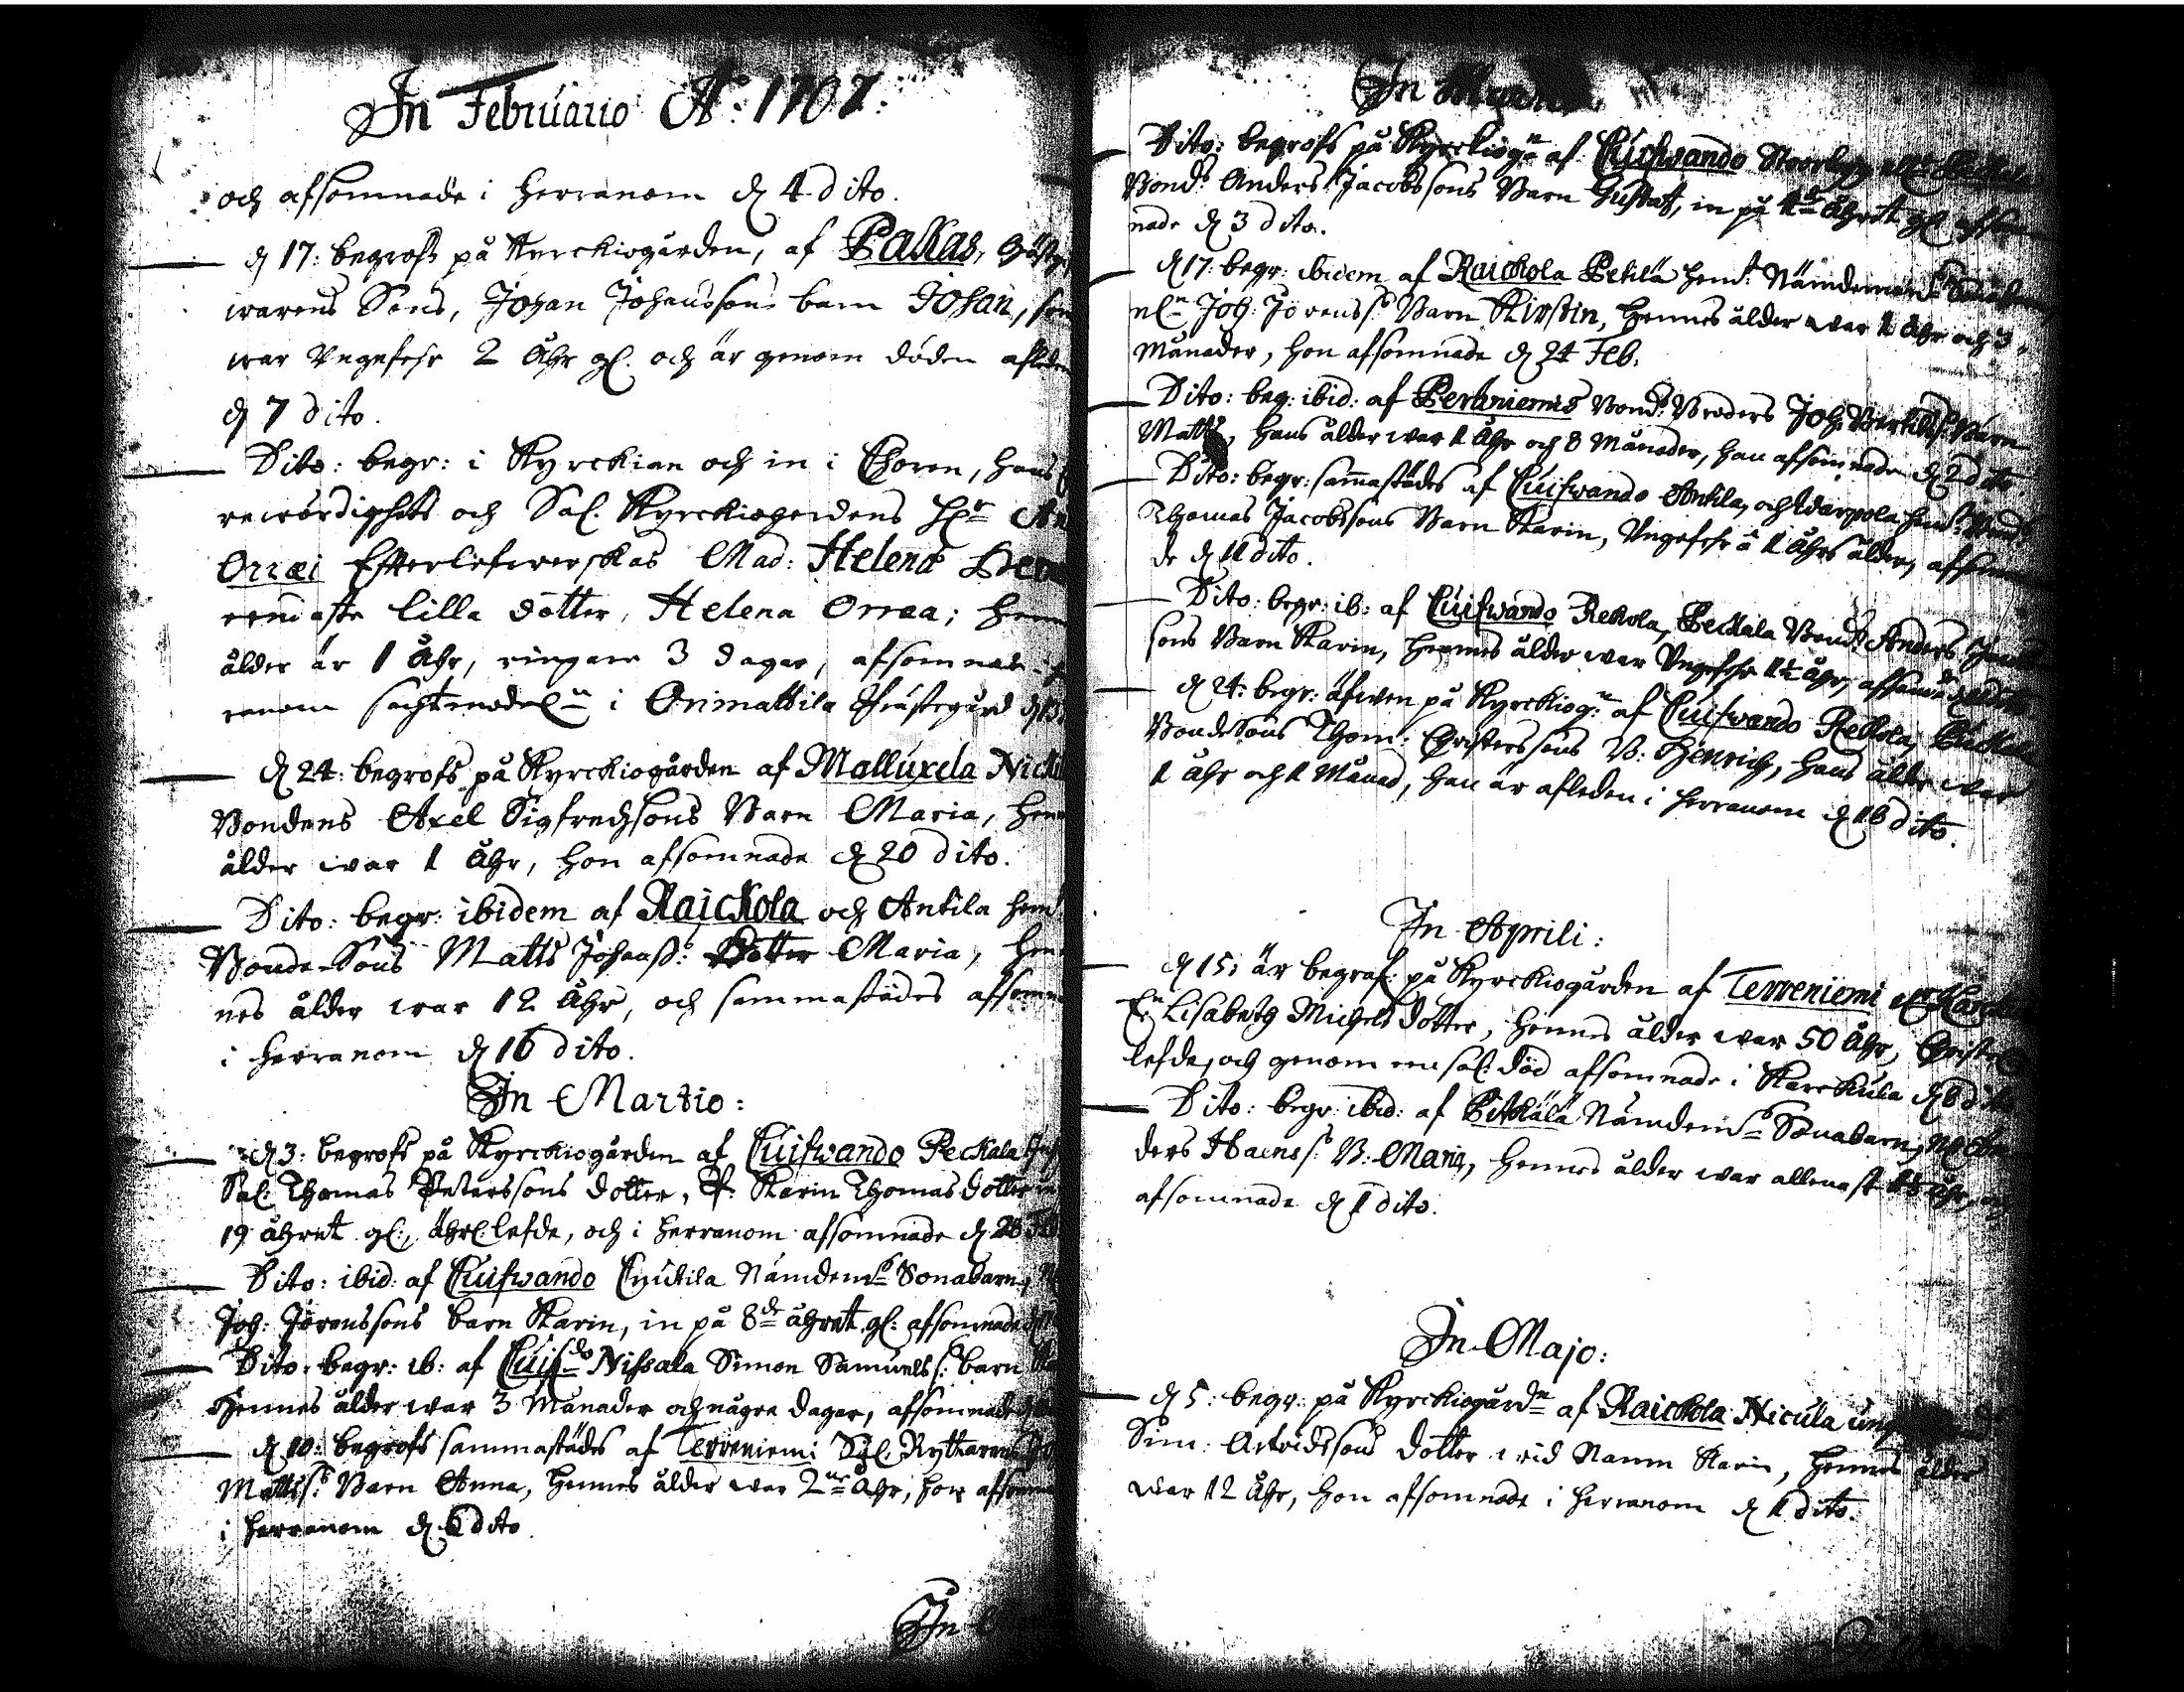 In Februario Aº: 1707:
och afsomnade i Herranom d. 4 dito.
d 17: begrofs på Kyrckiogården, af Pakas,
warens Sons, Johan Johanssons barn Johan, som
war Ungefehr 2 Åhr gl. och är genom döden afleden
d 7 dito.
Dito: begr: i Kyrckian och in i Choren, hans
rewördighets och Sal. Kyrckioherdens Hr
Orræi Effterlefwerskas Mad: Helenæ
lilla dotter, Helena Orræa;
ålder är 1 Åhr, ringare 3 dagar, afsomnade
ranom sachtmodel:n i Orimattila Prästegård
d 24: begrofs på Kyrckiogården af Malluxela
Bondens Axel Sigfredhsons Barn Maria,
ålder war 1 Åhr, hon afsomnade d 20 dito.
Dito: begr: ibidem af Raickola och Antila hem:
Bonde-Sons Matts Johanss: Dotter Maria, hen
nes ålder war 12 Åhr, och sammastädes afsomna
i Herranom d 16 dito.
In Martio:
d 3: begrofs på Kyrckiogården af Cuifwando Peckala
Sal: Thomas Peterssons dotter, P: Karin Thomasdotter
19 åhret gl:, ährl: lefde, och i Herranom afsomnade d 28
Dito: ibid: af Cuifwando Cnutila Nämdems Sonabarn,
Joh: Jörenssons barn Karin, in på 8de åhret gl: afsomnade
Dito: begr: ib: af Cuif:do Nissala Simon Samuelss: barn
Hennes ålder war 3 Månader och några dagar, afsomnade
d 10: begrofs sammastädes af Terreniemi Sal: Ryttarens
Mattss: Barn Anna, Hennes ålder war 2 Åhr, hon afsomna
i Herranom d 6 dito.
In
In
Dito: begrofs på Kyrckiog:n af Cuifwando
Bond: Anders Jacobssons Barn Gustaff, in på åhret gl.
nade d 3 dito.
d 17: begr: ibidem af Raickola Petilä hem:
Joh: Jörenss: Barn Kirstin, Hennes ålder war 1 Åhr och 3
Månader, hon afsomnade d 24 Feb.
Dito: beg: ibid: af Perhiniemis Bond: Broders Joh: Barn
Matts, Hans ålder war 1 Åhr och 8 Månader, han afsomnade d 2 dito
Dito: begr: sammastädes af Cuifwando Antila, och
Thomas Jacobssons Barn Karin, Ungefehr å 1 Åhrs ålder,
de d 11 dito.
Dito: begr: ib: af Cuifwando Rekola, Peckala Bond: Anders
sons Barn Karin, Hennes ålder war Ungefehr 1½ Åhr,
d 24: begr: äfwen på Kyrckiog:n af Cuifwando Rekola,
BondeSons Thom: Christerssons B: Henrich, Hans ålder war
1 Åhr och 1 Månad, han är afleden i Herranom d 16 dito.
In Aprili:
d 15: är begraf: på Kyrckiogården af Terreniemi
Lisabeth Michelsdotter, Hennes ålder war 50 Åhr,
lefde, och genom een sal: död afsomnade i Karckula d 6 dito
Dito: begr: ibid: af Pitkälä Nämdems Sonabarn,
ders Hainss: B: Maria, Hennes ålder war allenast
afsomnade d 1 dito.
In Majo:
d 5: begr: på Kyrckiogård:n af Raickola Nicula
Sim: Arwidssons dotter wid Namn Karin, Hennes ålder
war 12 Åhr, hon afsomnade i Herranom d 1 dito.